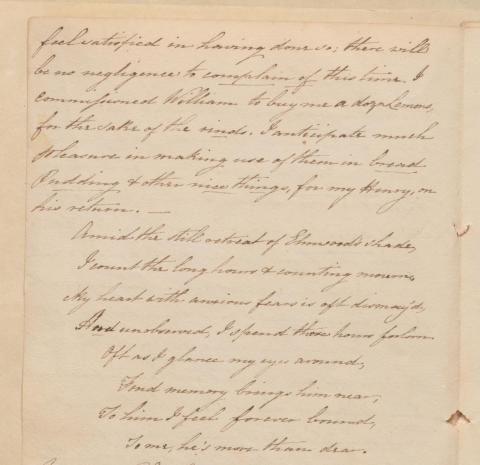 feel satisfied in having done so; there will
be no negligence to complain of this time. I
commissioned William to buy me a doz. Lemons,
for the sake of the rinds. I anticipate much
pleasure in making use of them in bread
Pudding & other nice things, for my Henry, on
his return. —
Amid the still retreat of Elmwood's shade,
I count the long hours & counting mourn,
My heart with anxious fears is oft dismay'd,
And unobserved, I spend those hours forlorn
Oft as I glance my eyes around,
Fond memory brings him near,
To him I feel forever bound,
To me, he's more than dear.